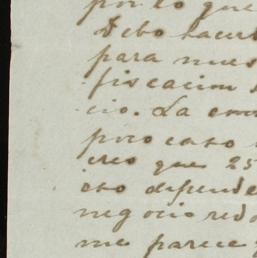 por lo que
Debo hacer
para
ficacion
cio. La
poco caso
creo que 25
eso depende
negocio redo
me parece